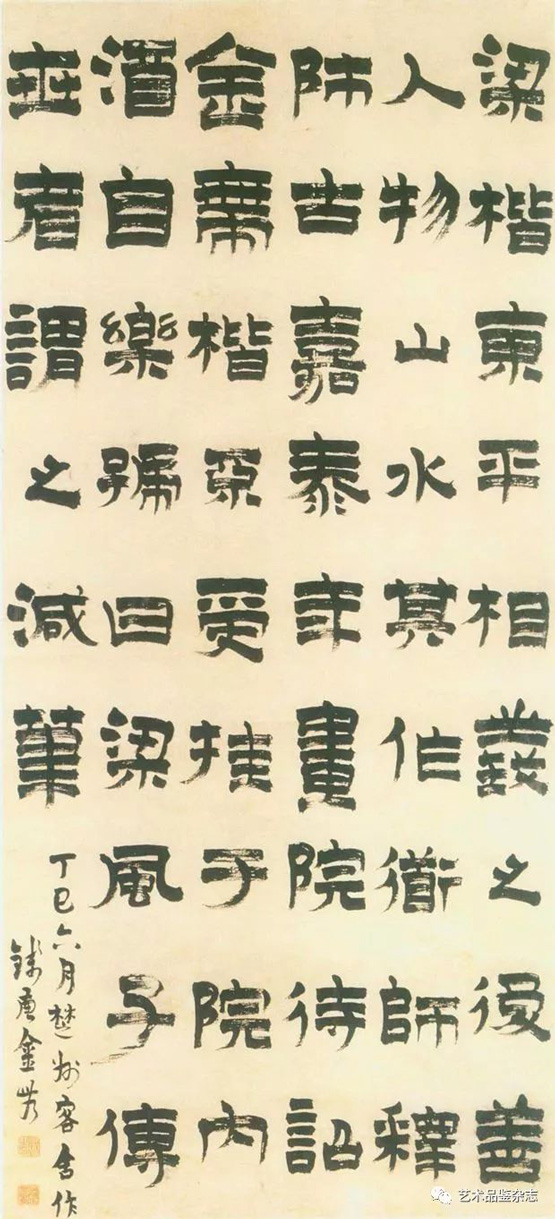 梁楷東平相羲之後善
人物山水其作衜師釋
師古嘉泰年畫院待詔
金帶楷受挂于院內
酒自樂號曰梁風子傳
世者謂之減筆
丁巳六月楚州客舍作
錢唐金農
艺术品鉴杂志